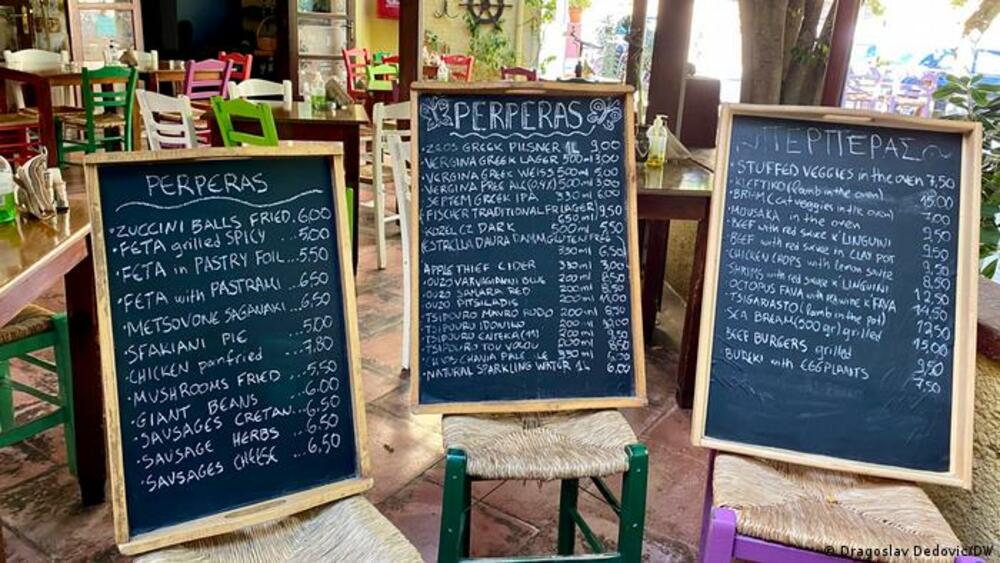 PERPERAS
·ZUCCINI BALLS FRIED..6,00
·FETA grilled SPICY ...5,00
·FETA in PASTRY FOIL...5,50
·FETA with PASTRAMI ...6,50
·METSOVONE SAGANAKI...6,50
·SFAKIANI PIE ...5,00
·CHICKEN panfried ...7,80
·MUSHROOMS FRIED ...5,50
·GIANT BEANS ...6,00
·SAUSAGES CRETAN...6,50
·SAUSAGE HERBS ...6,50
·SAUSAGES CHEESE ...6,50
PERPERAS
GREEK PILSNER 1L 9,00
·VERGINA GREEK LAGER 500ml 3,00
·VERGINA GREEK WEISS 500ml 5,00
·VERGINA FREE ALC(0,4%) 500ml 3,00
·SEPTEM GREEK IPA 330ml 6,00
·FISCHER TRADITIONAL FR LAGER
650ml 9,50
·KOZEL CZ DARK 500ml 5,50
·ESTRELLA DAURA DAMM GLUTEN FREE
330ml 6,50
·APPLE THIEF CIDER 330ml
·OUZO 200ml
·OUZO SAMARA RED 200ml
·OUZO PITSILADIS 200ml
·TSIPOURO MAVRO RODIO 200ml
·TSIPOURO IDONIKO 200ml
·TSIPOURO 200ml
·TSIPOURO 200ml
CHANIA PALE 330ml
·NATURAL SPARKLING WATER 1L 6,00
ΠΕΡΠΕΡΑΣ
·STUFFED VEGGIES in the oven 7,50
·KLEFTIKO (lamb in the oven) 15,00
·BRIAM (of veggies in the oven) 7,00
·MOUSAKA in the oven 9,50
·BEEF with red sauce & LINGUINI 9,50
·BEEF with red sauce in CLAY POT 9,50
·CHICKEN CHOPS with lemon sauce 8,50
·SHRIMPS with red sauce & LINGUINI
·OCTOPUS FAVA with red wine & FAVA
·TSIGARIASTO (lamb in the pot) 12,50
·SEA BREAM (500 gr) grilled 15,00
·BEEF BURGERS grilled 9,50
with EGGPLANTS 7,50
© Dragoslav Dedovic/DW